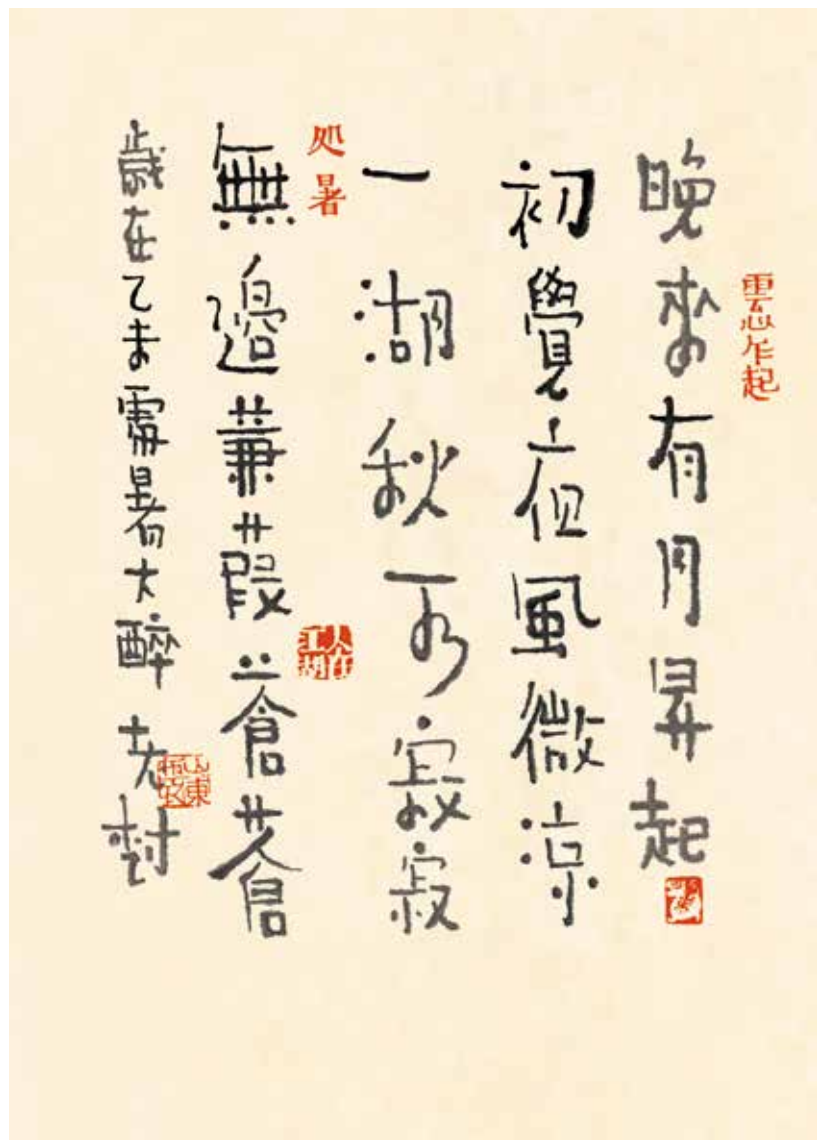 雲心乍起
晚來有月昇起
初覺夜風微涼
一湖秋寂寂
处暑
無邊蒹葭蒼蒼
人在江湖
歲在乙未處暑大醉 老樹
山東